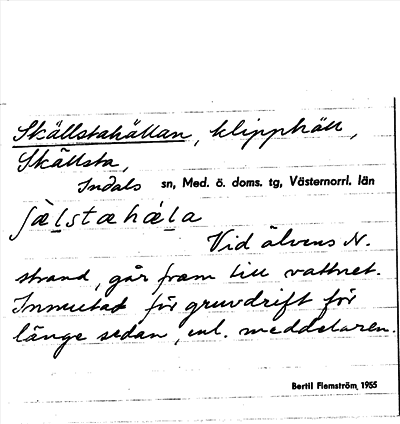 Skällstahällan, klipphäll,
Skällsta,
Indals sn, Med. ö. doms. tg, Västernorrl. län
ʃæ̀lstæhǽla
Vid älvens N.
strand, går fram till vattnet.
Inmutad för gruvdrift för
länge sedan, enl. meddelaren.
Bertil Flemström, 1955